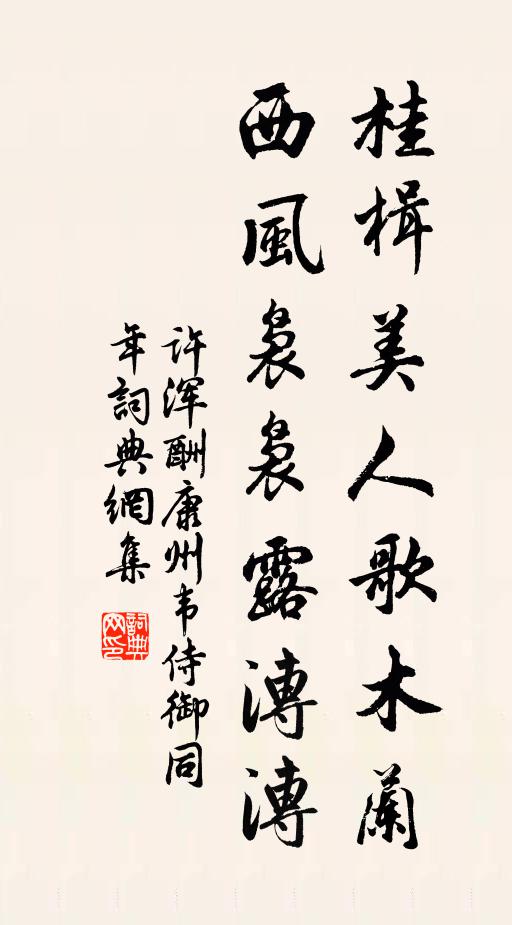 桂楫美人歌木蘭
西風裊裊露漙漙
许浑酬康州韦侍御同
年詞典網集
詞典网印